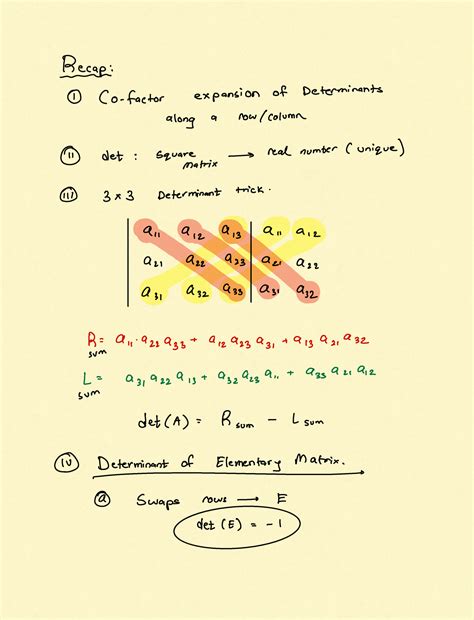 Recap:
(i) Co-factor expansion of Determinants
along a row/column
(ii) det : square matrix → real number (unique)
(iii) 3 × 3 Determinant trick.
a11 a12 a13 a11 a12
a21 a22 a23 a21 a22
a31 a32 a33 a31 a32
R sum = a11 . a22 a33 + a12 a23 a31 + a13 a21 a32
L sum = a31 a22 a13 + a32 a23 a11 + a33 a21 a12
det(A) = R sum - L sum
(iv) Determinant of Elementary Matrix.
(a) Swaps rows → E
det (E) = -1